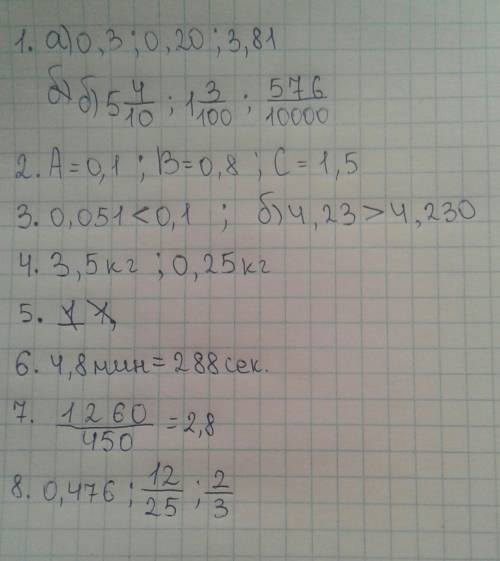 1. а) 0,3 ; 0,20 ; 3,81
б) 5 4/10 ; 1 3/100 ; 576/10000
2. А = 0,1 ; В = 0,8 ; С = 1,5
3. 0,051 < 0,1 ; б) 4,23 > 4,230
4. 3,5 кг ; 0,25 кг
5.
6. 4,8 мин = 288 сек.
7. 1260/450 = 2,8
8. 0,476 ; 12/25 ; 2/3